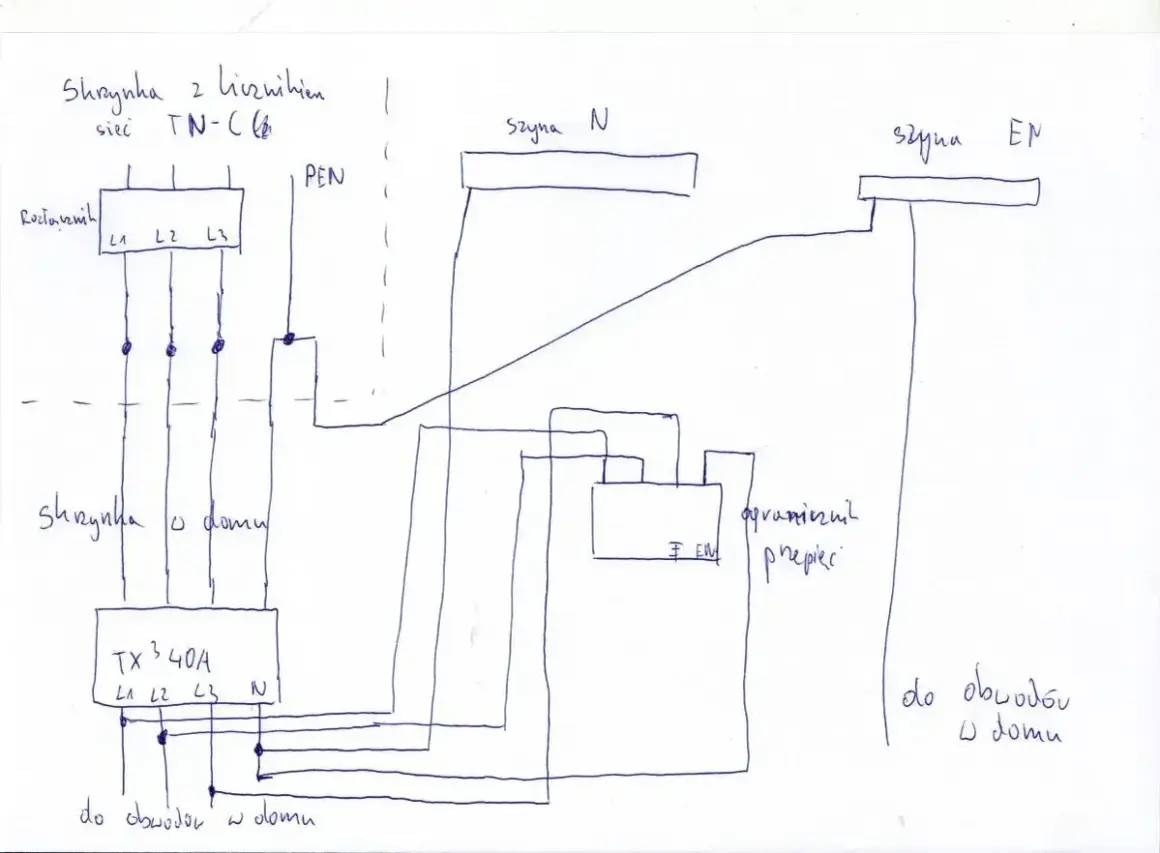 Skrzynka z licznikiem
sieć TN-C
PEN
szyna N
szyna EN
Rozłącznik
L1 L2 L3
Skrzynka w domu
ogranicznik
przepięć
EN
TX³ 40A
L1 L2 L3 N
do obwodów w domu
do obwodów
w domu